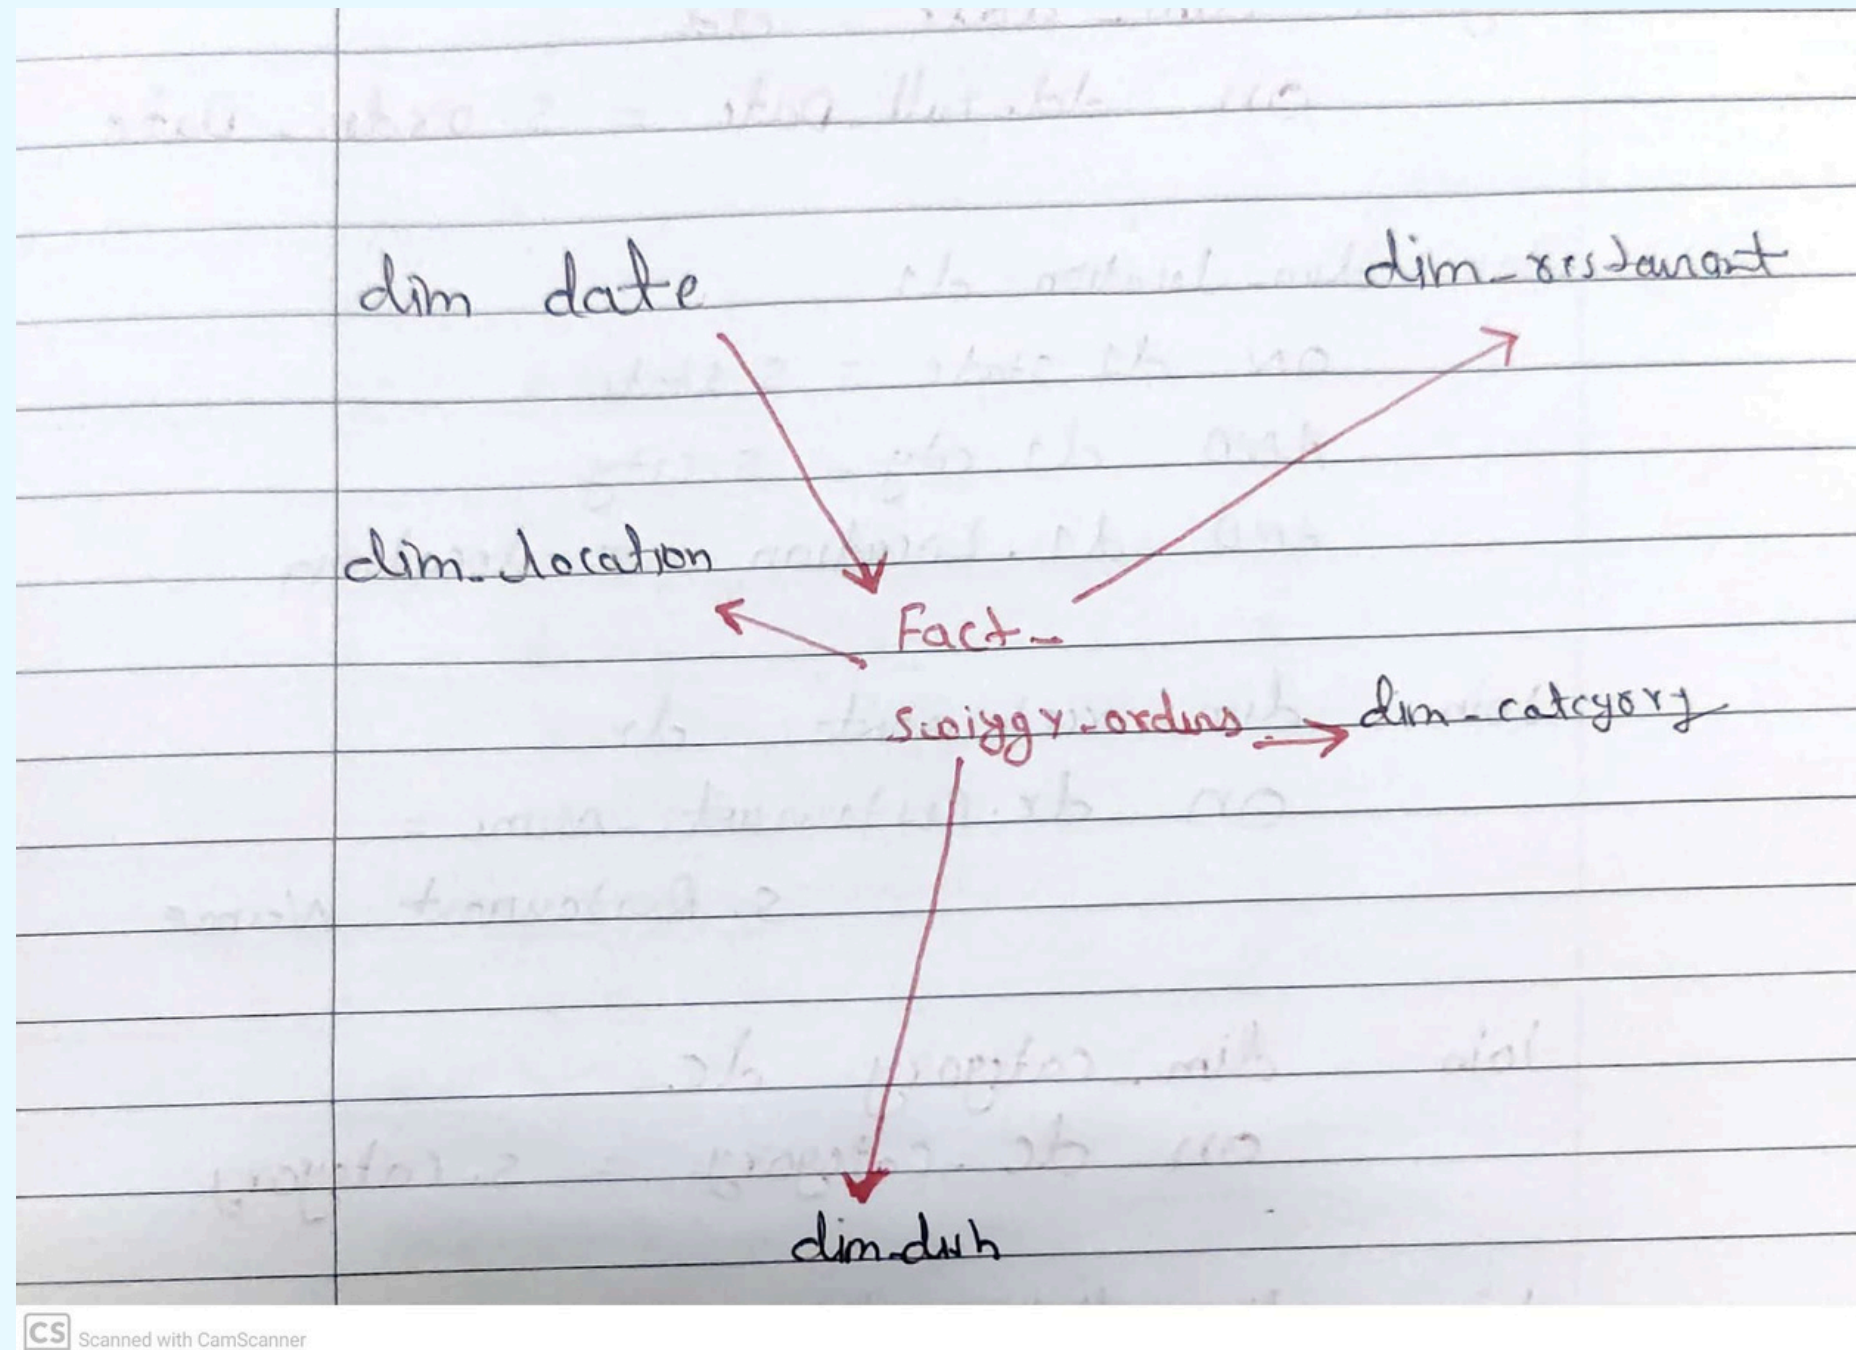 dim date
dim_restaurant
dim_location
Fact_
Swiggy_orders
dim_category
dim_dish
CS Scanned with CamScanner